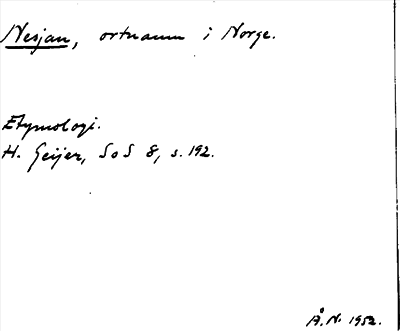 Nesjan, ortnamn i Norge.
Etymologi.
H. Geijer, SoS 8, s. 192.
Å. N. 1952.